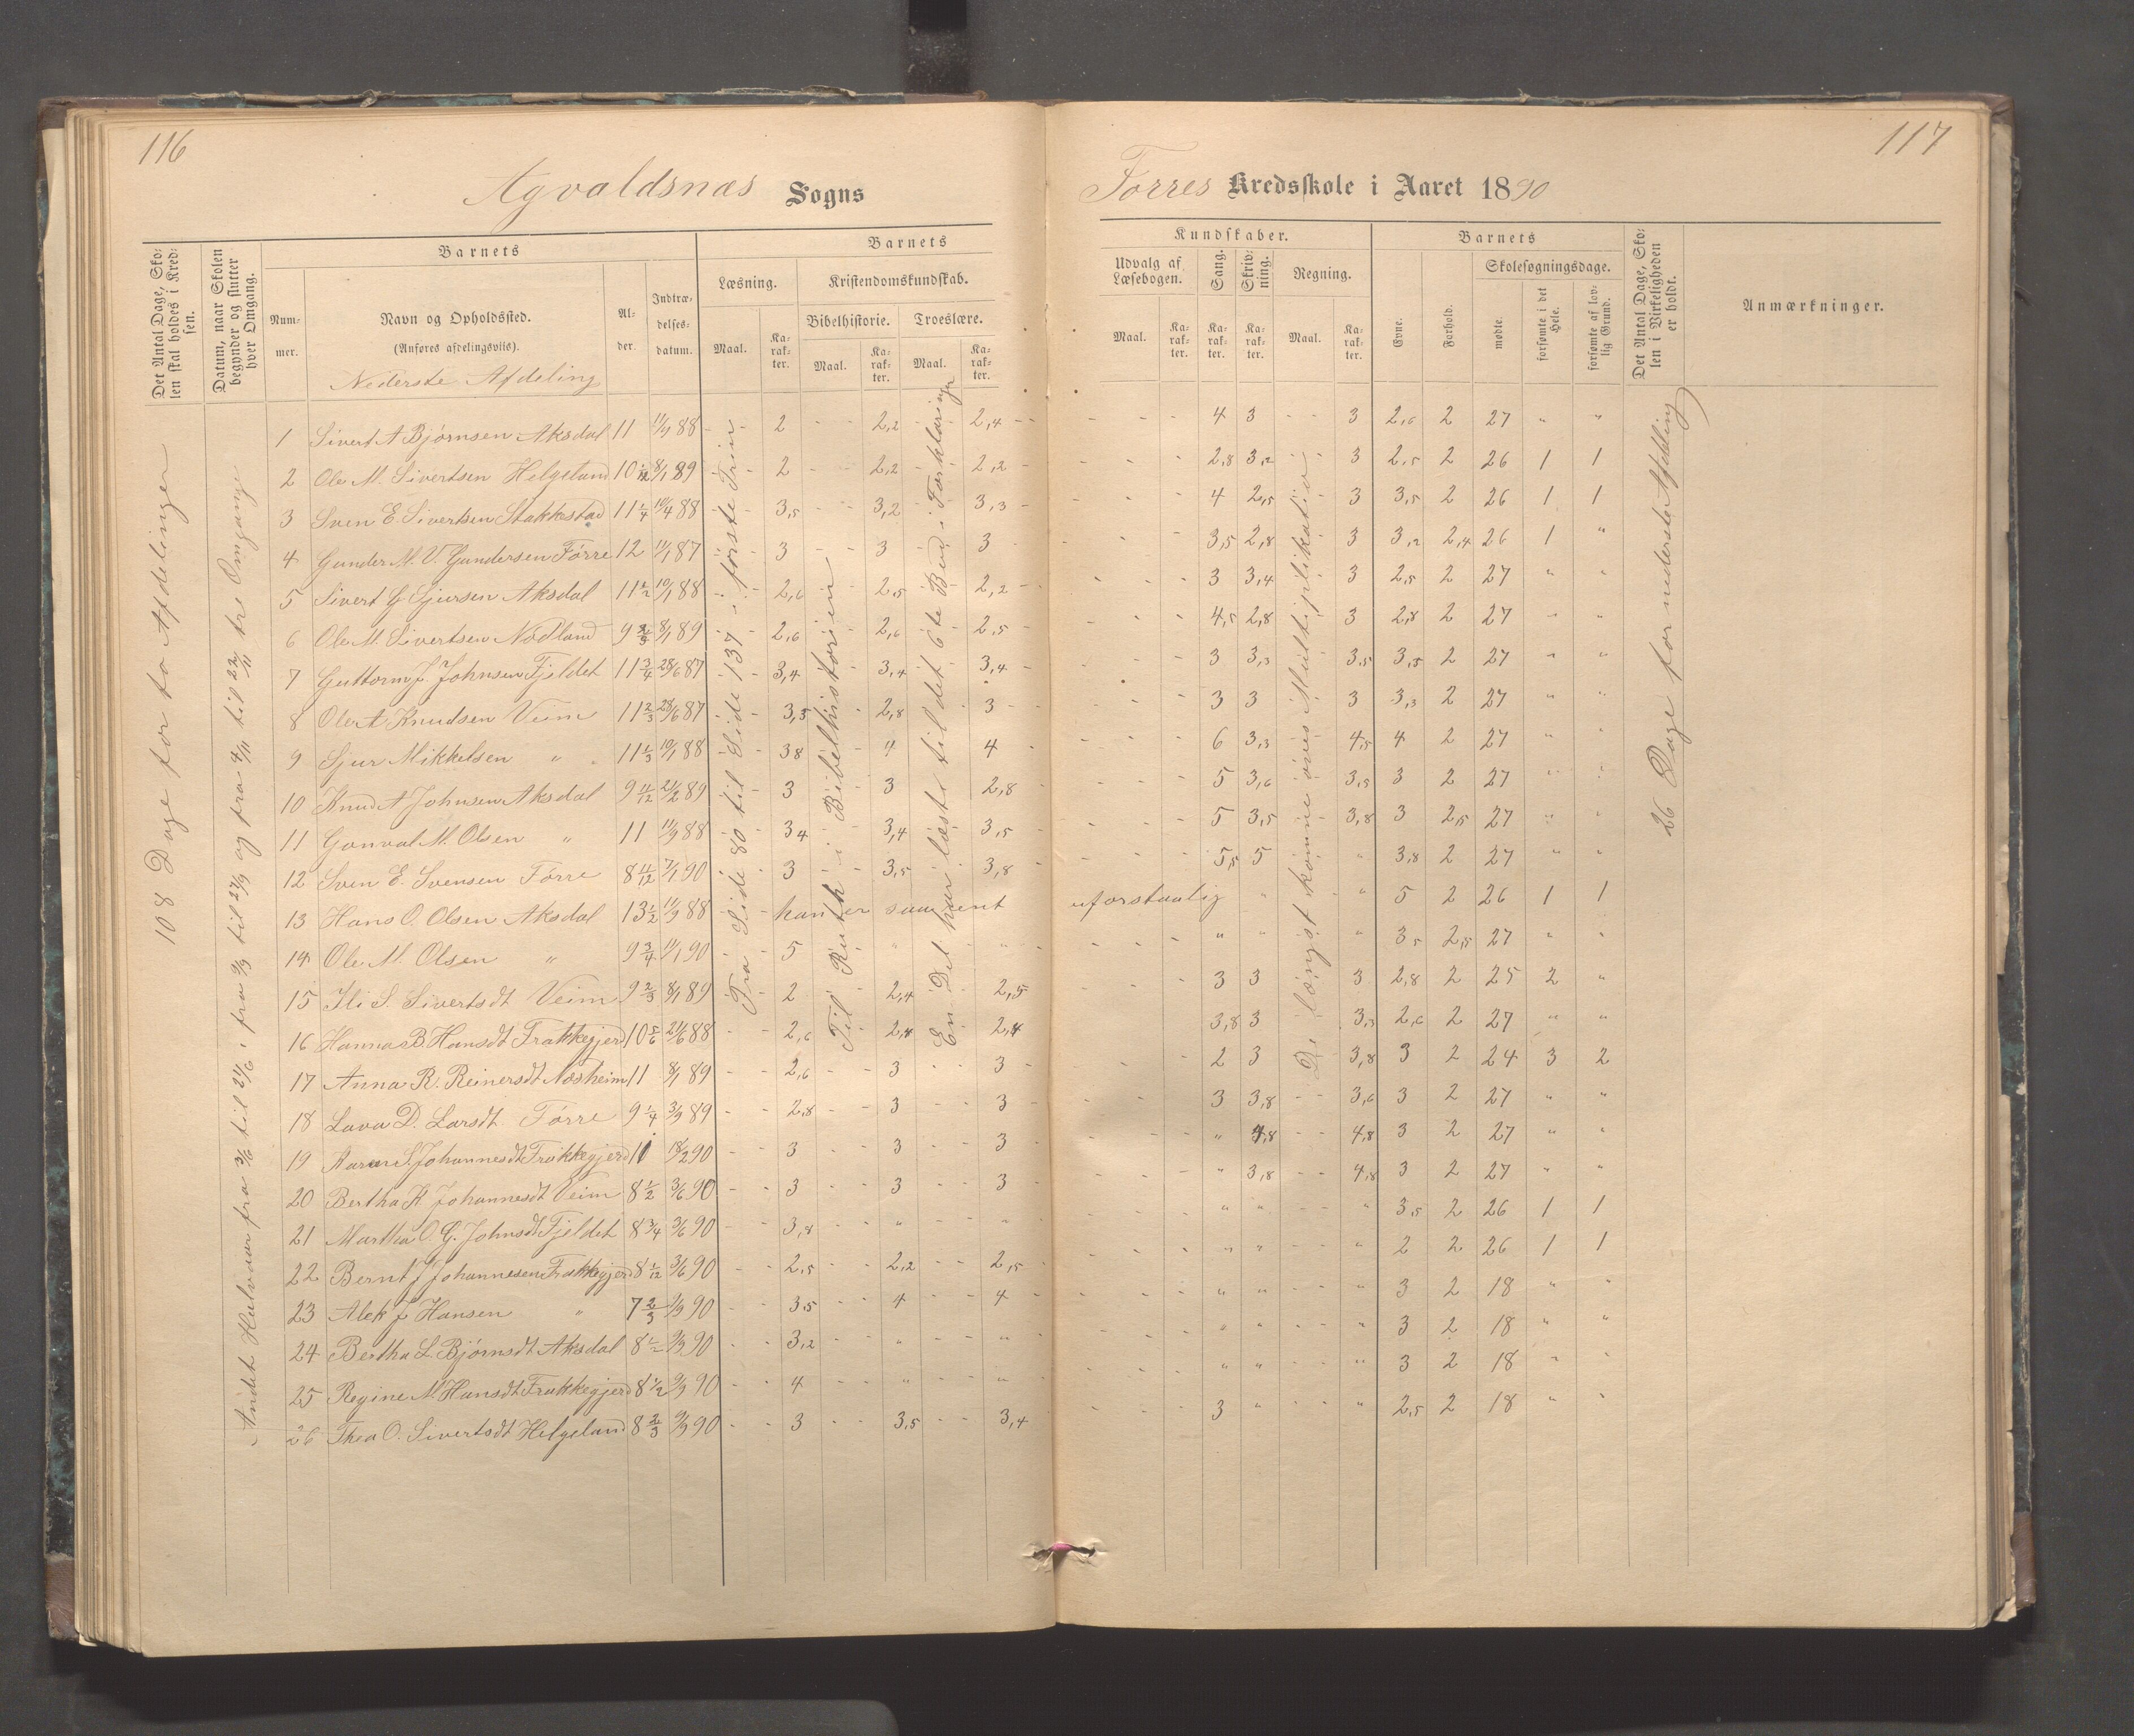 116
Agvaldsnæs Sogns
Det Antal Dage, Sko-
len skal holdes i Kred-
sen.
Datum, naar Skolen
begynder og slutter
hver Omgang.
Barnets
Num-
mer.
Navn og Opholdssted.
(Anføres afdelingsviis).
Nederste Afdeling
Al-
der.
Indtræ-
delses-
datum.
Barnets
Læsning.
Maal.
Ka-
rak-
ter.
Kristendomskundskab.
Bibelhistorie.
Maal.
Ka-
rak-
ter.
Troeslære.
Maal.
Ka-
rak-
ter.
108 Dage for to Afdelinger
Andet Halvaar fra 3/6 til 21/6, fra 9/9 til 27/9 og fra 4/11 til 22/11 tre Omgange
Fra Side 80 til Side 137 i første Trin
Til Ruth i Bibelhistorien
En Del har læste til det 6te Bud i Forklaringen
1 Sivert A Bjørnsen Aksdal 11 11/9 88 2 2,2 2,4
2 Ole M. Sivertsen Helgeland 10 1/12 8/1 89 2 2,2 2,2
3 Sven E. Sivertsen Stakkestad 11 1/4 10/4 88 3,5 3,2 3,3
4 Gunder M. V. Gundersen Førre 12 11/1 87 3 3 3
5 Sivert G Sjursen Aksdal 11 1/2 10/1 88 2,6 2,5 2,2
6 Ole M. Sivertsen Nodland 9 2/3 8/1 89 2,6 2,6 2,5
7 Guttorm J. Johnsen Fjeldet 11 3/4 28/6 87 3,4 3,4 3,4
8 Ole A Knudsen Veim 11 2/3 28/6 87 3,5 2,8 3
9 Sjur Mikkelsen " 11 1/3 10/1 88 38 4 4
10 Knud A Johnsen Aksdal 9 11/12 21/2 89 3 3 2,8
11 Gonval M. Olsen " 11 11/9 88 34 3,4 3,5
12 Sven E. Svensen Førre 8 11/12 7/1 90 3 3,5 3,8
13 Hans O. Olsen Aksdal 13 1/2 11/9 88 han er saa sent
14 Ole M. Olsen " 9 3/4 11/1 90 5 " "
15 Ili S. Sivertsdt Veim 9 2/3 8/1 89 2 2,4 2,5
16 Hanna B. Hansdt Frakkegjerd 10 5/6 21/6 88 2,6 2,4 2,4
17 Anna R. Reinersdt Næsheim 11 8/1 89 2,6 3 3
18 Lava D. Larsdt. Førre 9 1/4 3/9 89 2,8 3 3
19 S. Johannesdt Frakkegjerd 11 18/2 90 3 3 3
20 Bertha K Johannesdt Veim 8 1/2 3/6 90 3 3 3
21 Martha O. G. Johnsdt Fjeldet 8 3/4 3/6 90 3,8 " "
22 Bernt J Johannesen Frakkegjerd 8 1/12 3/6 90 2,5 2,2 2,5
23 Alek J Hansen " 7 2/3 9/9 90 3,5 4 4
24 Bertha L. Bjørnsdt Aksdal 8 1/2 9/9 90 3,2 " "
25 Regine M Hansdt Frakkegjerd 8 1/2 9/9 90 4 " "
26 Thea O. Sivertsdt Helgeland 8 2/3 9/9 90 3 3,5 3,4
117
Førres Kredsskole i Aaret 1890
Kundskaber.
Udvalg af
Læsebogen.
Maal.
Ka-
rak-
ter.
Sang.
Ka-
rak-
ter.
Skriv-
ning.
Ka-
rak-
ter.
Regning.
Maal.
Ka-
rak-
ter.
Barnets
Evne.
Forhold.
Skolesøgningsdage.
mødte.
forsømte i det
Hele.
forsømte af lov-
lig Grund.
Det Antal Dage, Sko-
len i Virkeligheden
er holdt.
Anmærkninger.
De længst komne øves i Multiplikation
26 Dage for nederste Afdeling
4 3 3 2,6 2 27 " "
2,8 3,2 3 2,5 2 26 1 1
4 2,5 3 3,5 2 26 1 1
3,5 2,8 3 3,2 2,4 26 1 "
3 3,4 3 2,5 2 27 " "
4,5 2,8 3 2,8 2 27 " "
3 3,3 3,5 3,5 2 27 " "
3 3 3 3,3 2 27 " "
6 3,3 4,5 4 2 27 " "
5 3,6 3,5 3 2 27 " "
5 3,5 3,8 3 2,5 27 " "
5,5 5 " 3,8 2 27 " "
uforstaalig " " 5 2 26 1 1
" " " 3,5 2,5 27 " "
3 3 3 2,8 2 25 2 "
3,8 3 3,5 2,6 2 27 " "
2 3 3,8 3 2 24 3 2
3 3,8 3,6 3 2 27 " "
" 4,8 4,8 3 2 27 " "
" 3,8 4,8 3 2 27 " "
" " " 3,5 2 26 1 1
" " " 2 2 26 1 1
" " " 3 2 18 " "
" " " 3 2 18 " "
" " " 3 2 18 " "
3 " " 2,5 2 18 " "